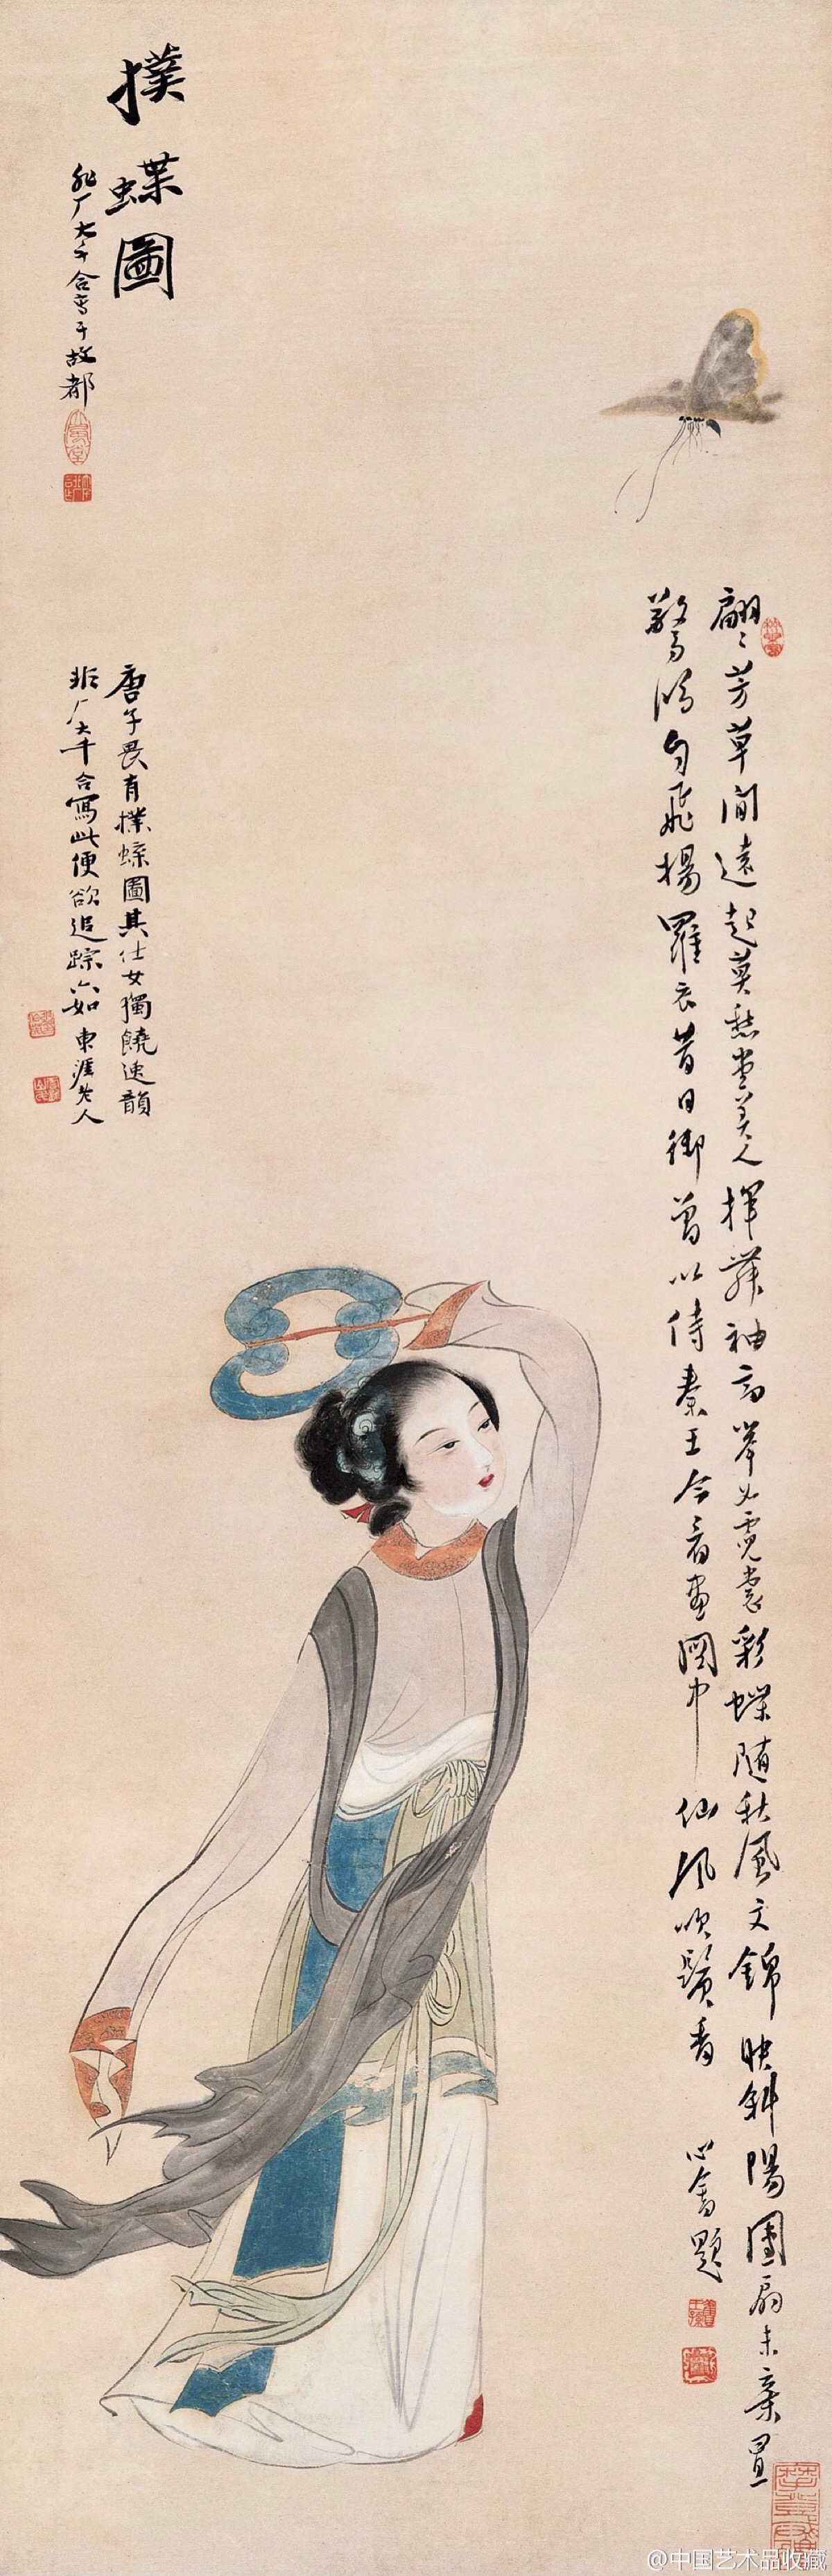 翩〻芳草間遠起莫愁堂美人揮舞袖高舉如霓裳彩蝶隨秋風文錦映斜陽團扇未棄置
驚鴻自飛揚羅衣昔日御曾以侍秦王今看畫圖中仙風吹鬢香 心畬題
撲蝶圖
非厂大千合寫于故都
大風堂
唐子畏有撲蝶圖其仕女獨饒逸韻
非厂大千合寫此便欲追踪六如 東涯老人
@中国艺术品收藏